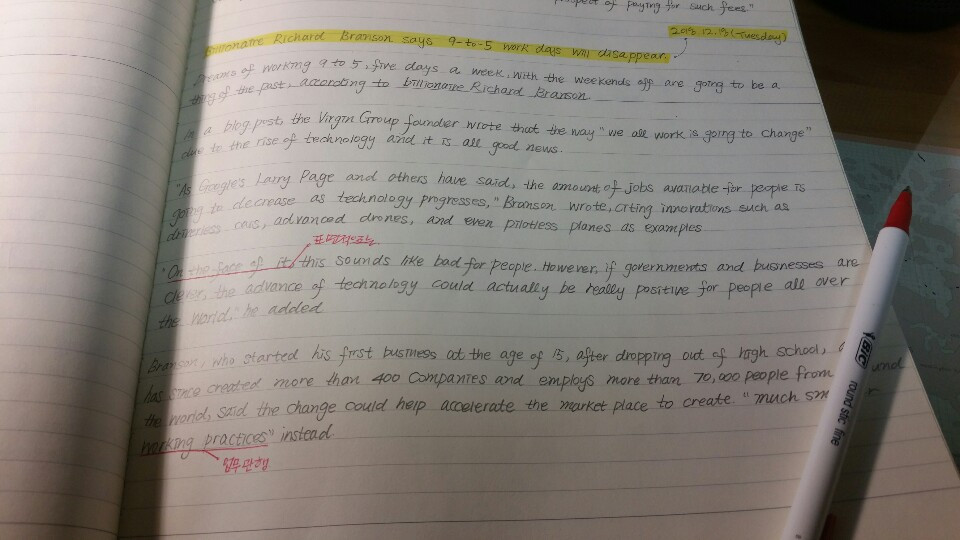 prospect of paying for such fees"
2018. 12. 18 (Tuesday)
Billionaire Richard Branson says 9-to-5 work days will disappear
Dreams of working 9 to 5, five days a week, with the weekends off are going to be a
thing of the past, according to billionaire Richard Branson
In a blog post, the Virgin Group founder wrote that the way "we all work is going to change"
due to the rise of technology and it is all good news.
"As Google's Larry Page and others have said, the amount of jobs available for people is
going to decrease as technology progresses," Branson wrote, citing innovations such as
driverless cars, advanced drones, and even pilotless planes as examples
표면적으로는
"On the face of it, this sounds like bad for people. However, if governments and businesses are
clever, the advance of technology could actually be really positive for people all over
the world," he added
Branson, who started his first business at the age of 15, after dropping out of high school,
has since created more than 400 companies and employs more than 70,000 people from
the world, said the change could help accelerate the market place to create "much
working practices" instead.
업무 관행
BIC round stic fine